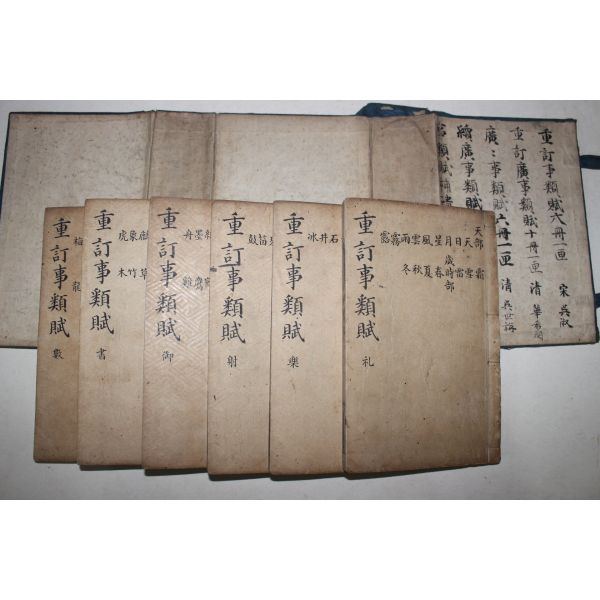 重訂事類賦六冊一匣 宋 吳淑
重訂廣事類賦十冊一匣 清 華希閔
廣〻事類賦六冊一匣 清 吳世旃
續廣事類賦
天部
天日月星風雲雨霧露
霜雪雷
歲時部
春夏秋冬
重訂事類賦 礼
石井冰
重訂事類賦 樂
笛鼓
重訂事類賦 射
墨舟
鷹雞
重訂事類賦 御
象虎
草竹木
重訂事類賦 書
梅
龍
重訂事類賦 數